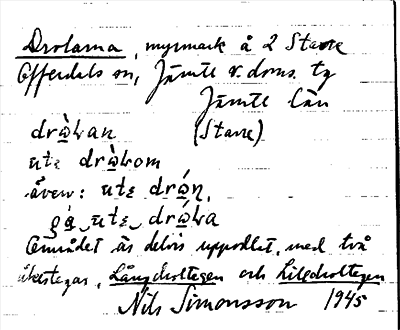 Drolarna, myrmark å 2 Stavre
Offerdals sn, Jämtl. v. doms. tg
Jämtl. län
drὼɩ̵an (Stavre)
utɛ drὼɩ̵om
även: utɛ drὼn,
gá utɛ drὼɩ̵a
Området är delvis uppodlat, med två
Långdrottegen och Lilldrottegen
Nils Simonsson 1945